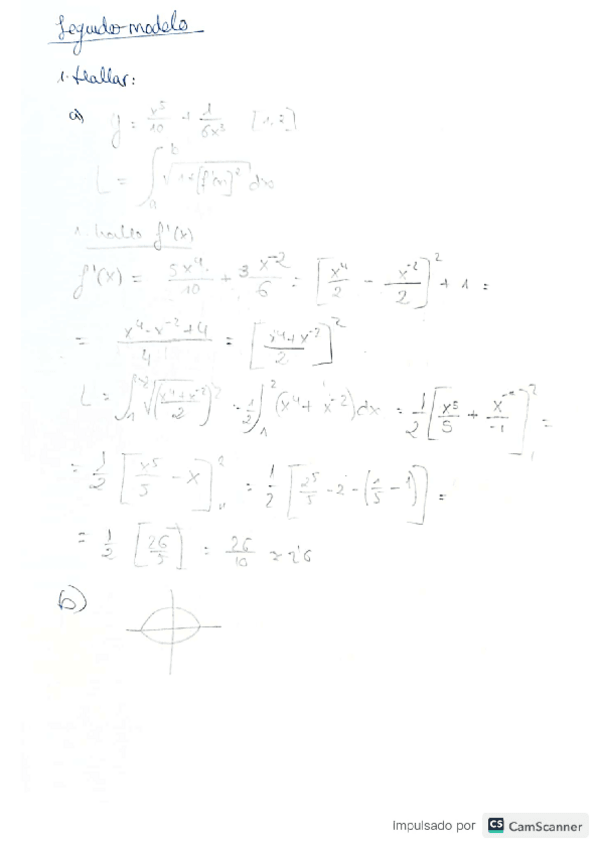 Segundo modelo
1. Hallar:
a) y = x^5/10 + 1/6x^3 [1,2]
L = ∫ √1+[f'(x)]^2 dx
1. hallo f'(x)
f'(x) = 5x^4/10 + 3 x^-2/6 = [x^4/2 - x^-2/2]^2 + 1 =
= x^4-x^-2+4/4 = [x^4+x^-2/2]^2
L = ∫_1^2 √(x^4+x^-2/2)^2 = 1/2 ∫_1^2 (x^4+x^-2) dx = 1/2 [x^5/5 + x^-1/-1]_1^2 =
= 1/2 [x^5/5 - x]^2 = 1/2 [2^5/5 - 2 - (1/5 - 1)] =
= 1/2 [26/5] = 26/10 = 2'6
b)
Impulsado por CS CamScanner